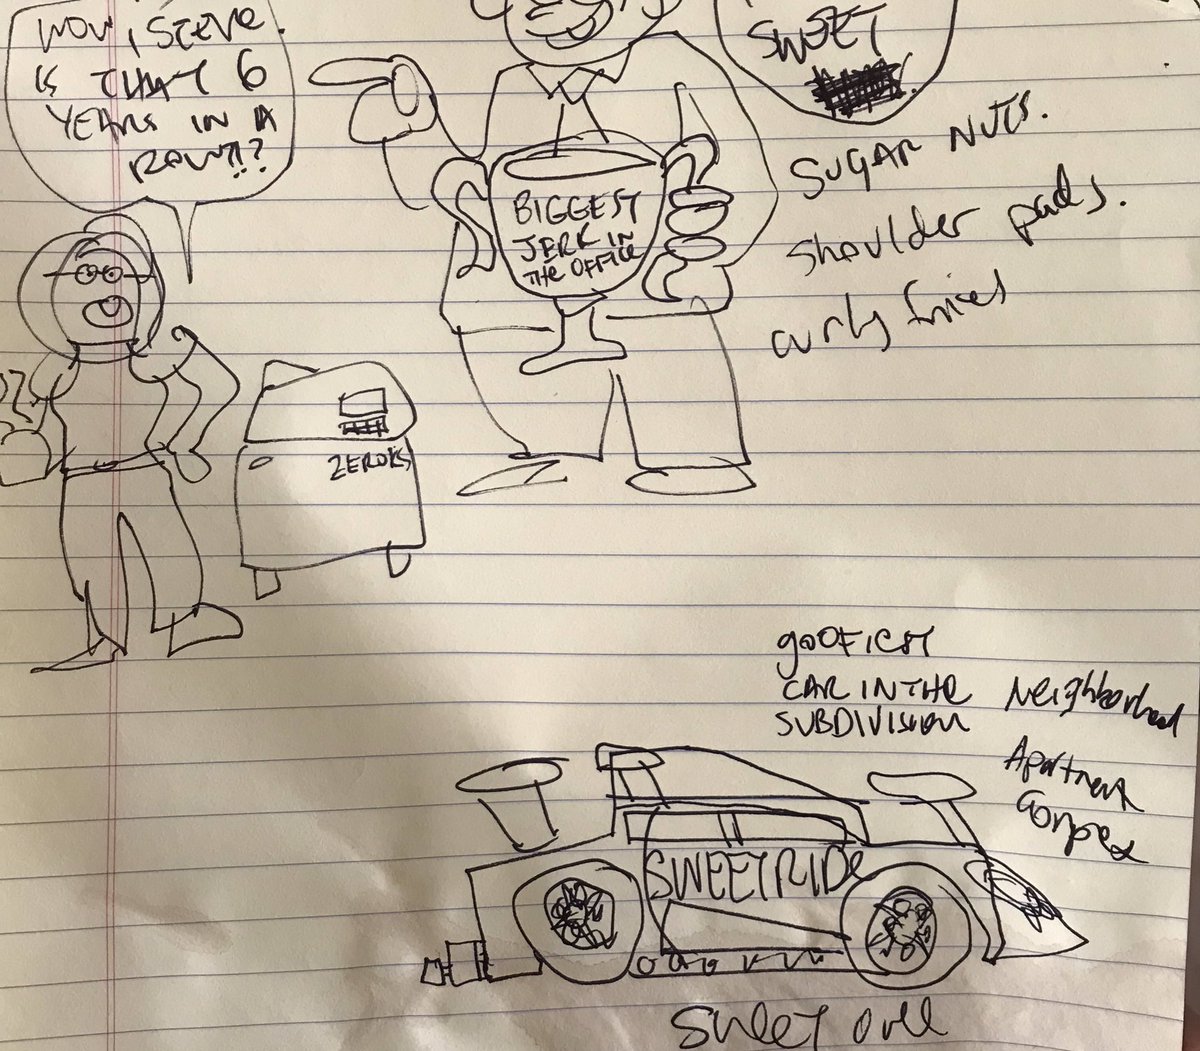 WOW, STEVE.
IS THAT 6
YEARS IN A
ROW?!!?
SWEET
SUGAR NUTS.
shoulder pads.
curly fries
BIGGEST
JERK IN
THE OFFICE
ZEROKS
gOOFIEST
CAR IN THE
SUBDIVISION
Neighborhood
Apartment
Complex
SWEET RIDE
SWEET